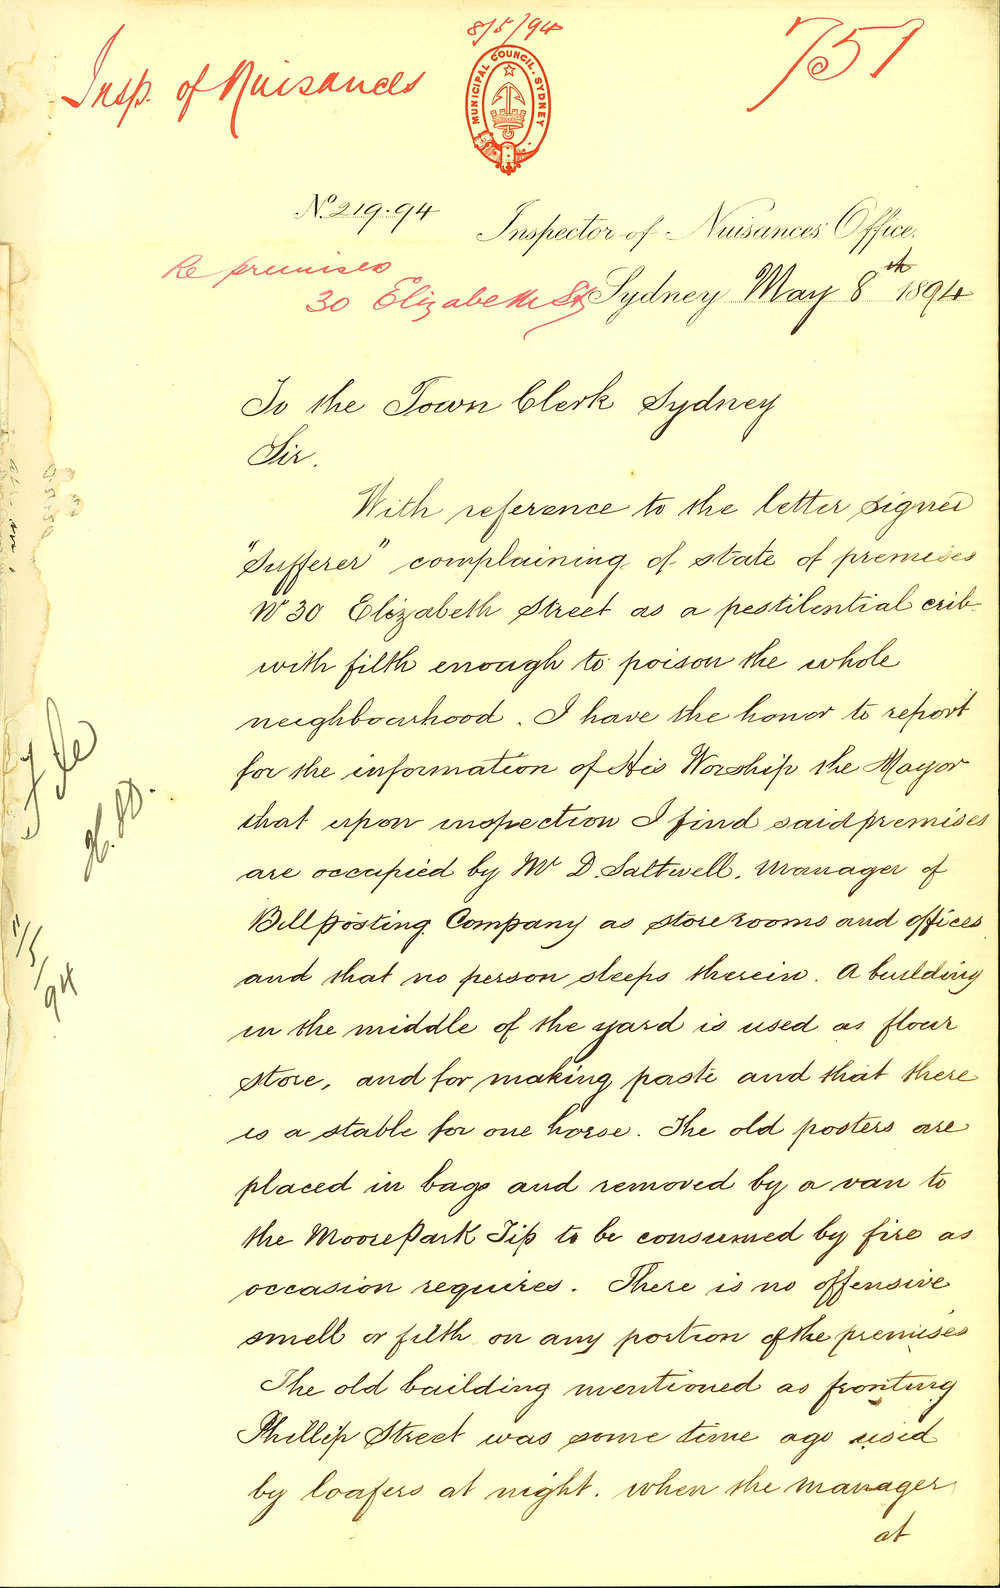 8/5/94
751
Insp. of Nuisances
MUNICIPAL COUNCIL. SYDNEY
No. 219.94
Inspector of Nuisances Office.
Re premises
30 Elizabeth St
Sydney May 8th 1894
To the Town Clerk Sydney
Sir.
With reference to the letter signed
"Sufferer" complaining of state of premises
No 30 Elizabeth Street as a pestilential crib
with filth enough to poison the whole
neighbourhood. I have the honor to report
for the information of His Worship the Mayor
that upon inspection I find said premises
are occupied by Mr D. Saltwell. Manager of
Billposting Company as store rooms and offices
and that no person sleeps therein. A building
in the middle of the yard is used as flour
store, and for making paste and that there
is a stable for one horse. The old posters are
placed in bags and removed by a van to
the Moore Park Tip to be consumed by fire as
occasion requires. There is no offensive
smell or filth on any portion of the premises
The old building mentioned as fronting
Phillip Street was some time ago used
by loafers at night. when the manager
at
File
11/5/94